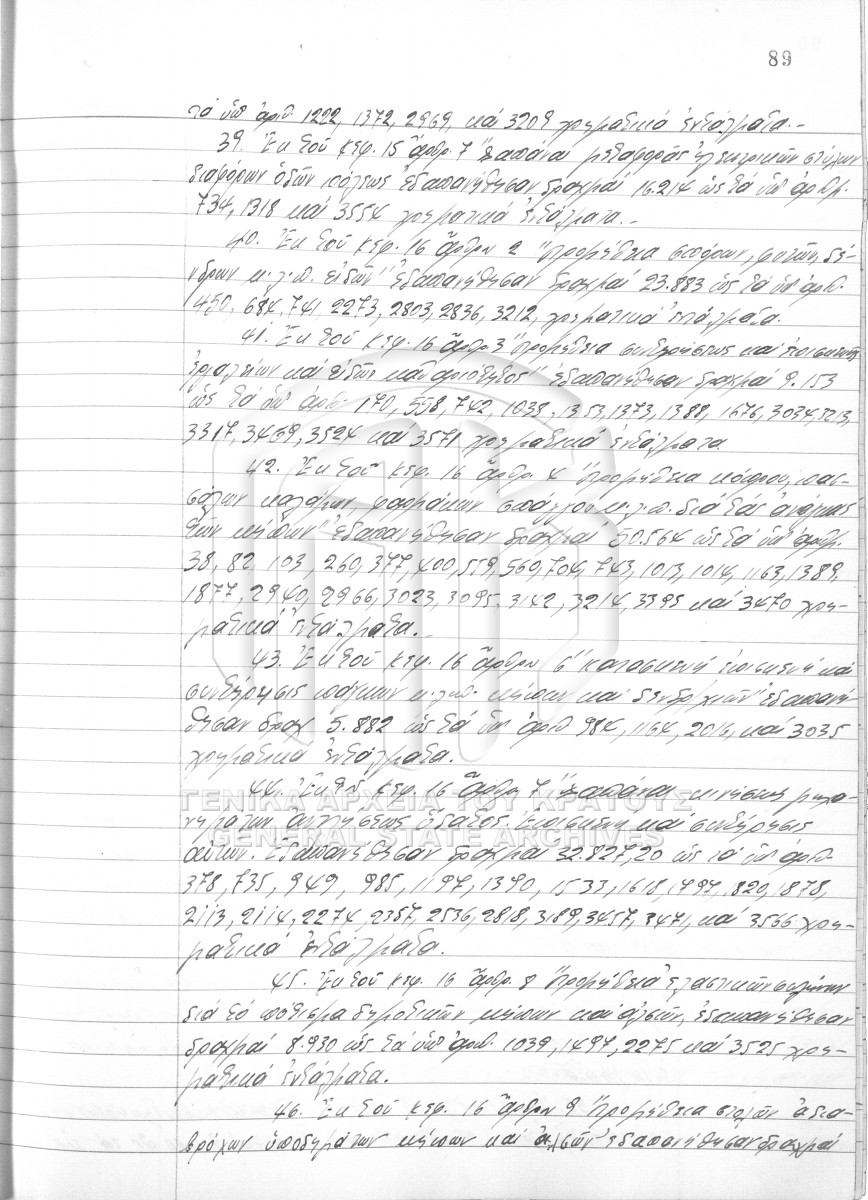 89
τά ὑπ' ἀριθ. 1222, 1372, 2969, καί 3209 χρηματικά ἐντάλματα.-
39. Ἐκ τοῦ κεφ. 15 ἄρθρ. 7 "Δαπάναι μεταφορᾶς ἠλεκτρικῶν στύλων
διαφόρων ὁδῶν πόλεως ἐδαπανήθησαν δραχμαί 16.214 ὡς τά ὑπ' ἀριθμ.
734, 1318 καί 3554 χρηματικά ἐντάλματα.-
40. Ἐκ τοῦ κεφ. 16 ἄρθρου 2 "Προμήθεια σπόρων, φυτῶν, δέ-
νδρων κ.λ.π. εἰδῶν" ἐδαπανήθησαν δραχμαί 23.883 ὡς τά ὑπ' ἀριθ.
450, 684, 741 2273, 2803, 2836, 3212, χρηματικά ἐντάλματα.
41. Ἐκ τοῦ κεφ. 16 ἄρθρ. 3 "Προμήθεια συντηρήσεως καί ἐπισκευῆς
ἐργαλείων καί εἰδῶν καθαριότητος" ἐδαπανήθησαν δραχμαί 9.153
ὡς τά ὑπ' ἀριθ. 170, 558, 742, 1038, 1353, 1373, 1388, 1676, 3034, 3213,
3317, 3469, 3524 καί 3571 χρηματικά ἐντάλματα.
42. Ἐκ τοῦ κεφ. 16 ἄρθρ. 4 "Προμήθεια κόπρου, πασ-
σάλων καλάμων, φαρμάκων σπάγγου κ.λ.π. διά τάς ἀνάγκας
τῶν κήπων" ἐδαπανήθησαν δραχμαί 50.564 ὡς τά ὑπ' ἀριθμ.
38, 82 103, 260, 377, 400, 559, 560, 704, 743, 1013, 1014, 1163, 1389,
1877, 2940, 2966, 3023, 3095, 3142, 3214, 3395 καί 3470 χρη-
ματικά ἐντάλματα.-
43. Ἐκ τοῦ κεφ. 16 ἄρθρου 5 "κατασκευή ἐπισκευή καί
συντήρησις πάγκων κ.λ.π. κήπων καί δενδρ/χιῶν" ἐδαπανή-
θησαν δραχ 5.882 ὡς τά ὑπ' ἀριθ 984, 1164, 2016, καί 3035
χρηματικά ἐντάλματα.
44. Ἐκ τοῦ κεφ. 16 ἄρθρ. 7 "Δαπάναι κινήσεως μηχα-
νημάτων ἀντλήσεως ὕδατος. Ἐπισκευή καί συντήρησις
αὐτῶν. Ἐδαπανήθησαν δραχμαί 32.827,20 ὡς τά ὑπ' ἀριθ.
378, 735, 949, 985, 1197, 1390, 1533, 1618, 1797, 820, 1878,
2113, 2114, 2274, 2357, 2536, 2818, 3189, 3457, 3471, καί 3566 χρη-
ματικά ἐντάλματα.
45. Ἐκ τοῦ κεφ. 16 ἄρθρ. 8 "Προμήθεια ἐλαστικῶν σωλήνων
διά τό πότισμα δημοτικῶν κήπων καί ἀλσῶν, ἐδαπανήθησαν
δραχμαί 8.930 ὡς τά ὑπ' ἀριθ. 1039, 1497, 2275 καί 3525 χρη-
ματικά ἐντάλματα.
46. Ἐκ τοῦ κεφ. 16 ἄρθρου 9 "Προμήθεια στολῶν ἀδια-
βρόχων ὑποδημάτων κήπων καί ἀλσῶν" ἐδαπανήθησαν δραχμαί
ΓΕΝΙΚΑ ΑΡΧΕΙΑ ΤΟΥ ΚΡΑΤΟΥΣ
GENERAL STATE ARCHIVES